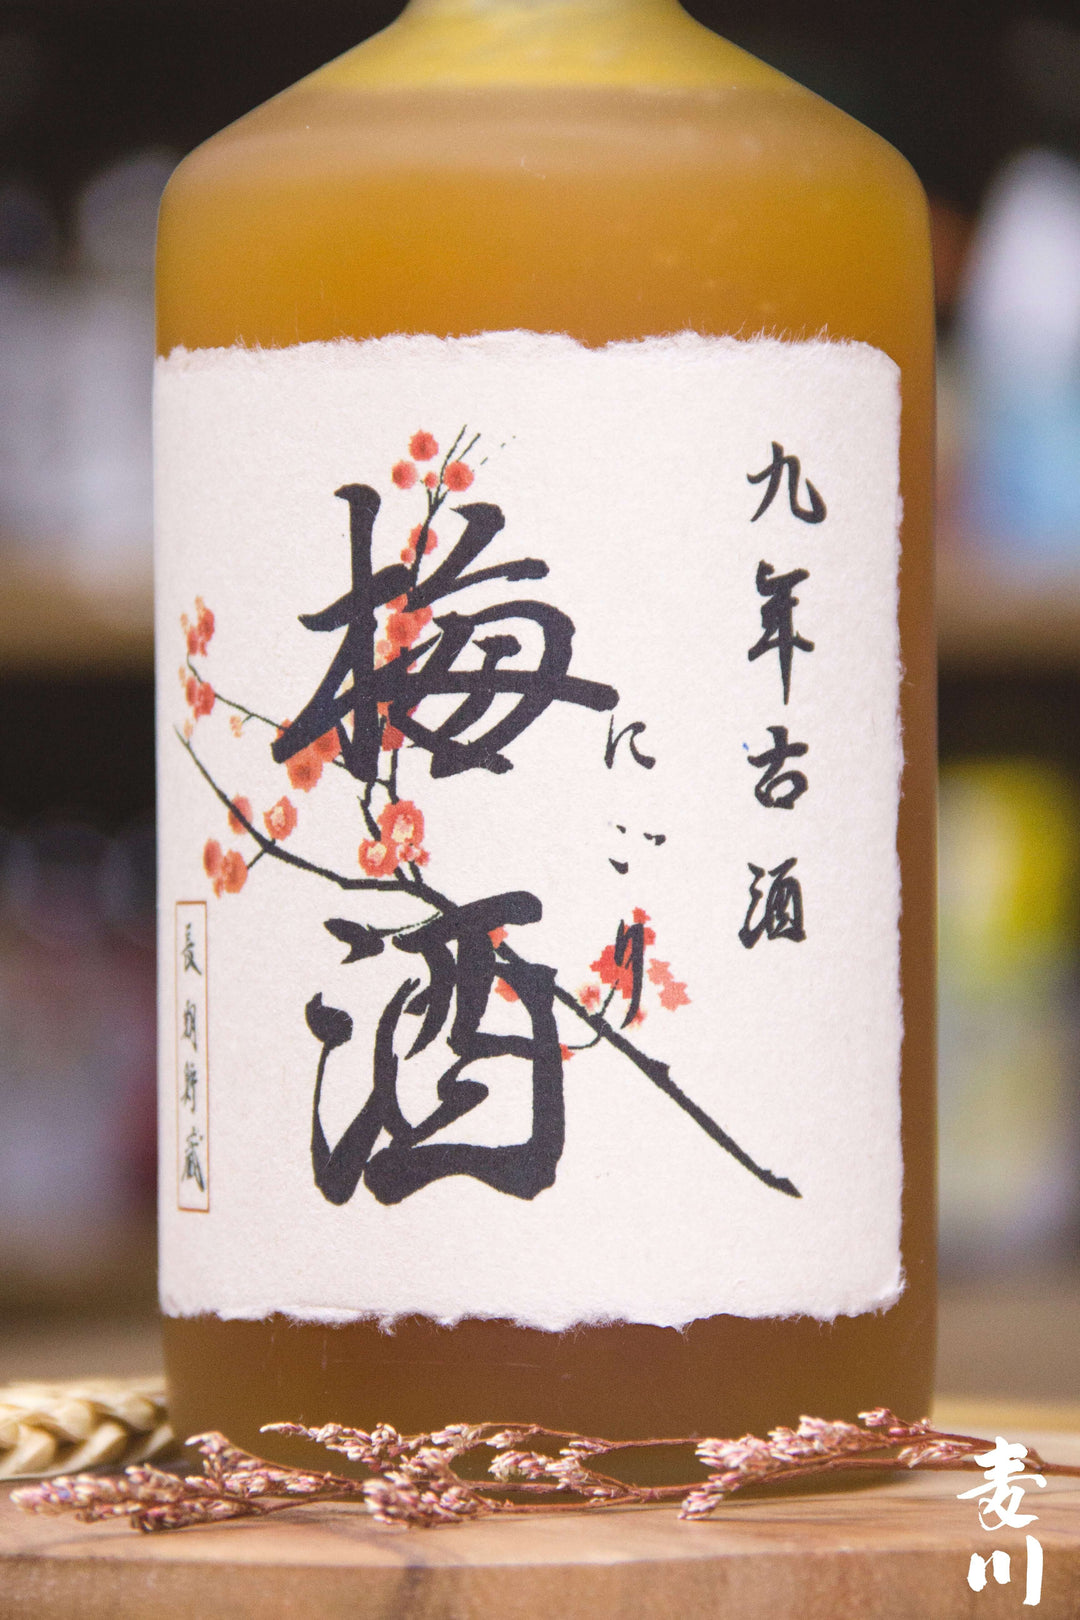 九年古酒
にごり
梅酒
長期貯蔵
麦川